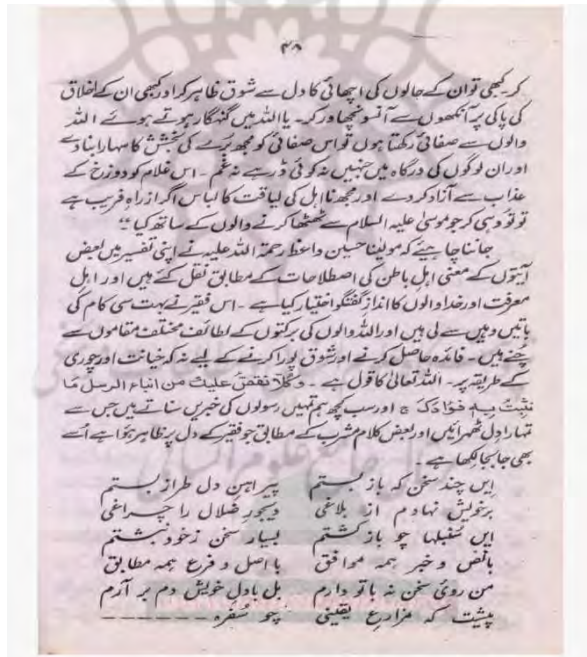 ۴۸
کر۔ کبھی تو ان کے حالوں کی اچھائی کا دل سے شوق ظاہر کر اور کبھی ان کے اخلاق
کی پاکی پہ آنکھوں سے آنسو نچھاور کر۔ یا اللہ میں گنہگار ہوتے ہوئے اللہ
والوں سے صفائی رکھتا ہوں تو اس صفائی کو مجھ بُرے کی بخشش کا سہارا بنا دے
اور ان لوگوں کی درگاہ میں جنہیں نہ کوئی ڈر ہے نہ غم۔ اس غلام کو دوزخ کے
عذاب سے آزاد کر دے اور مجھ نااہل کی لیاقت کا لباس اگر از راہِ فریب ہے
تو تُو وہی کر جو موسیٰ علیہ السلام سے ٹھٹھا کرنے والوں کے ساتھ کیا"
جاننا چاہیئے کہ مولینا حسین واعظ رحمۃ اللہ علیہ نے اپنی تفسیر میں بعض
آیتوں کے معنی اہلِ باطن کی اصطلاحات کے مطابق نقل کئے ہیں اور اہلِ
معرفت اور خدا والوں کا اندازِ گفتگو اختیار کیا ہے۔ اس فقیر نے بہت سی کام کی
باتیں وہیں سے لی ہیں اور اللہ والوں کی برکتوں کے لطائف مختلف مقاموں سے
چُنے ہیں۔ فائدہ حاصل کرنے اور شوق پورا کرنے کے لیے نہ کہ خیانت اور چوری
کے طریقہ پر۔ اللہ تعالیٰ کا قول ہے۔ وَكُلّاً نقصُّ علیك من انباء الرسل مَا
نثبّت بہٖ فوَٴادك ج اور سب کچھ ہم تمہیں رسولوں کی خبریں سناتے ہیں جس سے
تمہارا دل ٹھہرائیں اور بعض کلام مشرب کے مطابق جو فقیر کے دل پر ظاہر ہوا ہے اُسے
بھی جا بجا لکھا ہے۔
ایں چند سخن کہ باز بستم پیراہنِ دل طراز بستم
برخویش نہادم از بلاغی دیجورِ ضلال را چراغی
ایں سنبلہا چو باز کشتم بسیار سخن ز خود نبشتم
با نص و خبر ہمہ موافق با اصل و فرع ہمہ مطابق
من روئ سخن نہ با تو دارم بل با دل خویش دم بر آرم
پیشت کہ مزارعِ یقینی چو سُفرہ ------